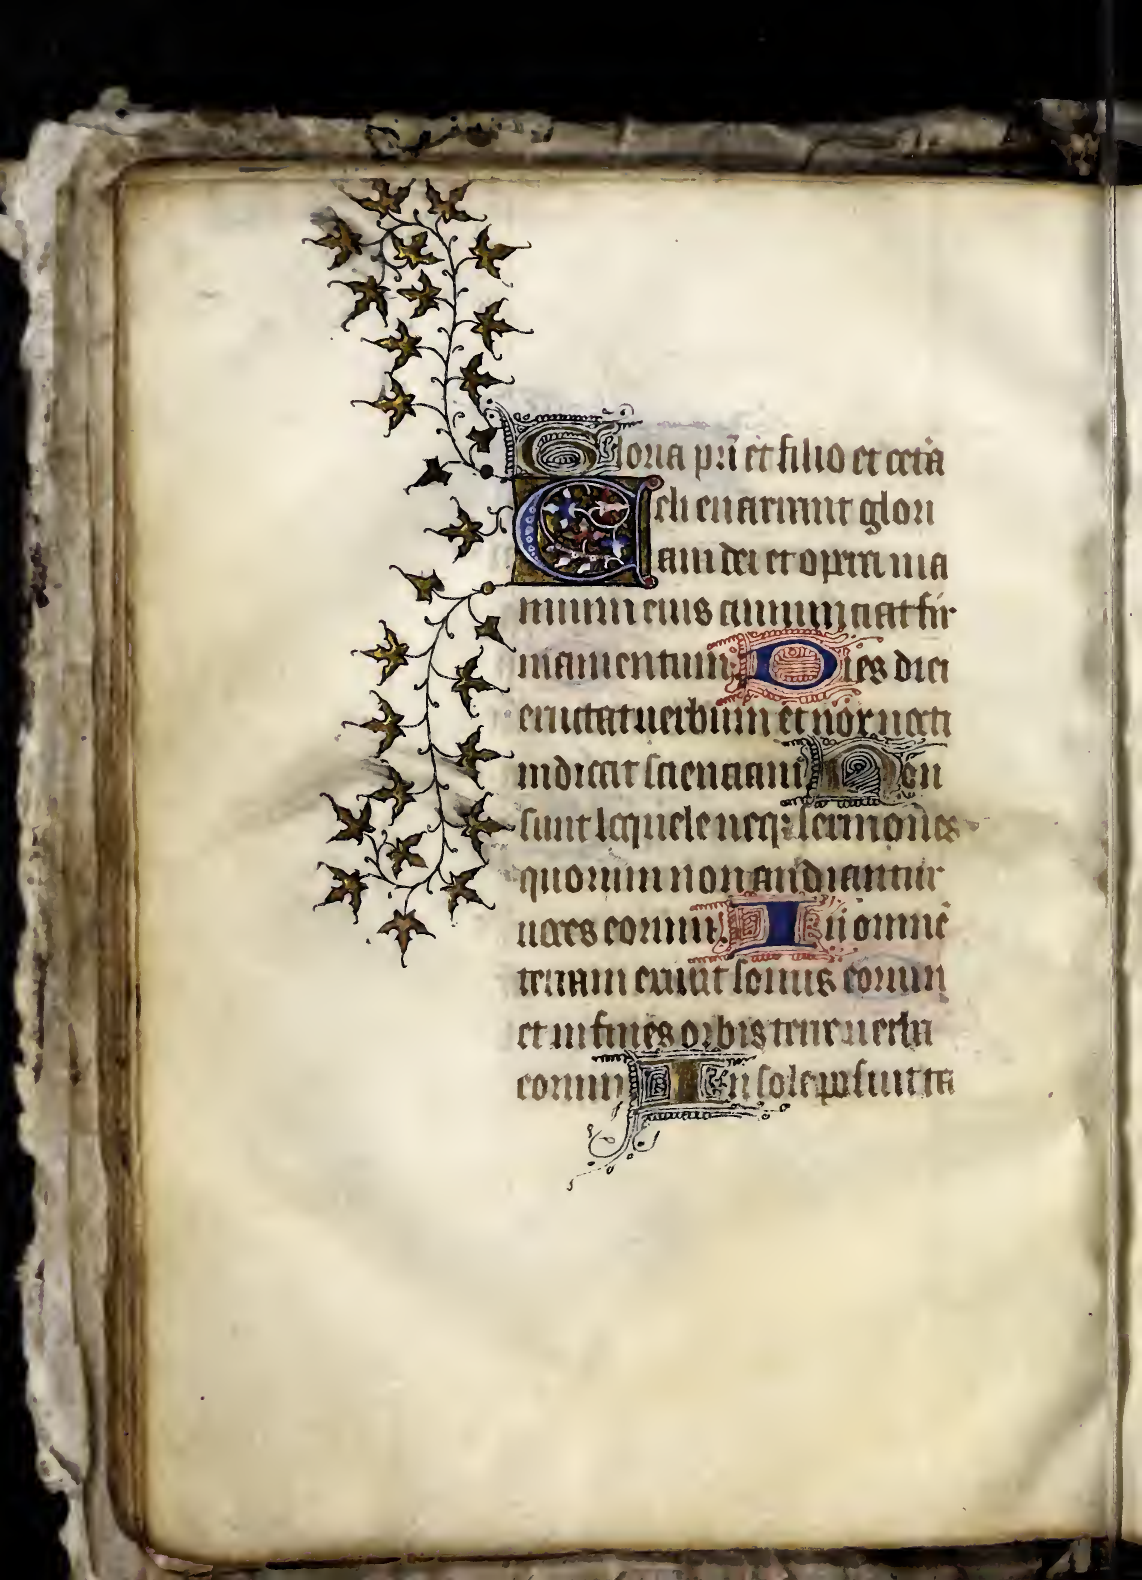 Gloria pr̄i et filio et cetā
Celi enarrant glori
am dei et opera ma
nuum eius annunciat fir
mamentum. Dies diei
eructat uerbum et nox nocti
indicat scienciam. Non
sunt loquele neq; sermones
quorum non audiantur
uoces eorum. In omnē
terram exiuit sonus eorum
et in fines orbis terre uerba
eorum. In sole posuit ta